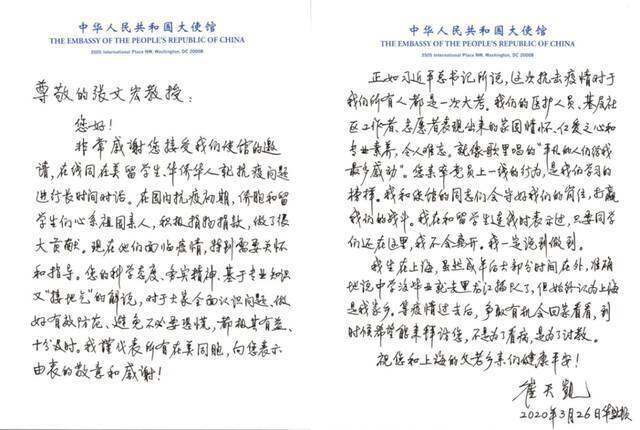 中华人民共和国大使馆
THE EMBASSY OF THE PEOPLE'S REPUBLIC OF CHINA
3505 International Place NW, Washington, DC 20008
尊敬的张文宏教授：
您好！
非常感谢您接受我们使馆的邀
请，在线同在美留学生、华侨华人就抗疫问题
进行长时间对话。在国内抗疫初期，侨胞和留
学生们心系祖国亲人，积极捐物捐款，做了很
大贡献。现在他们面临疫情，特别需要关怀
和指导。您的科学态度、务实精神、基于专业知识
又"接地气"的解说，对于大家全面认识问题、做
好有效防范、避免不必要恐慌，都极其有益、
十分及时。我谨代表所有在美同胞，向您表示
由衷的敬意和感谢！
中华人民共和国大使馆
THE EMBASSY OF THE PEOPLE'S REPUBLIC OF CHINA
3505 International Place NW, Washington, DC 20008
正如习近平总书记所说，这次抗击疫情对于
我们所有人都是一次大考。我们的医护人员、基层社
区工作者、志愿者表现出来的家国情怀、仁爱之心和
专业素养，令人难忘。就像歌里唱的"平凡的人们给我
最多感动"。您要求党员上一线的行为，是我们学习的
榜样。我和使馆的同志们会守好我们的岗位，打赢
我们的战斗。我在和留学生连线时表示过，只要同学
们还在这里，我不会离开。我一定说到做到。
我生在上海，虽然成年后大部分时间在外，准确
地说中学没毕业就去黑龙江插队了，但始终认为上海
是我家乡。等疫情过去后，争取有机会回家看看，到
时候希望能来拜访您，不是为了看病，是为了讨教。
祝您和上海的父老乡亲们健康平安！
崔天凯
2020年3月26日